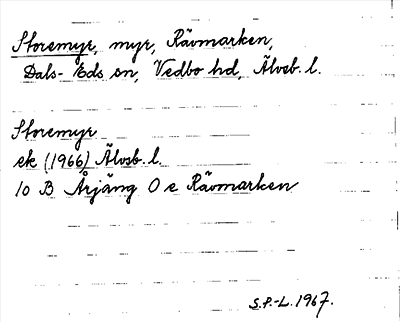 Storemyr, myr, Rävmarken,
Dals-Eds sn, Vedbo hd, Älvsb. l.
Storemyr
ek (1966) Älvsb. l.
10 B Årjäng O e Rävmarken
S.P.-L. 1967.